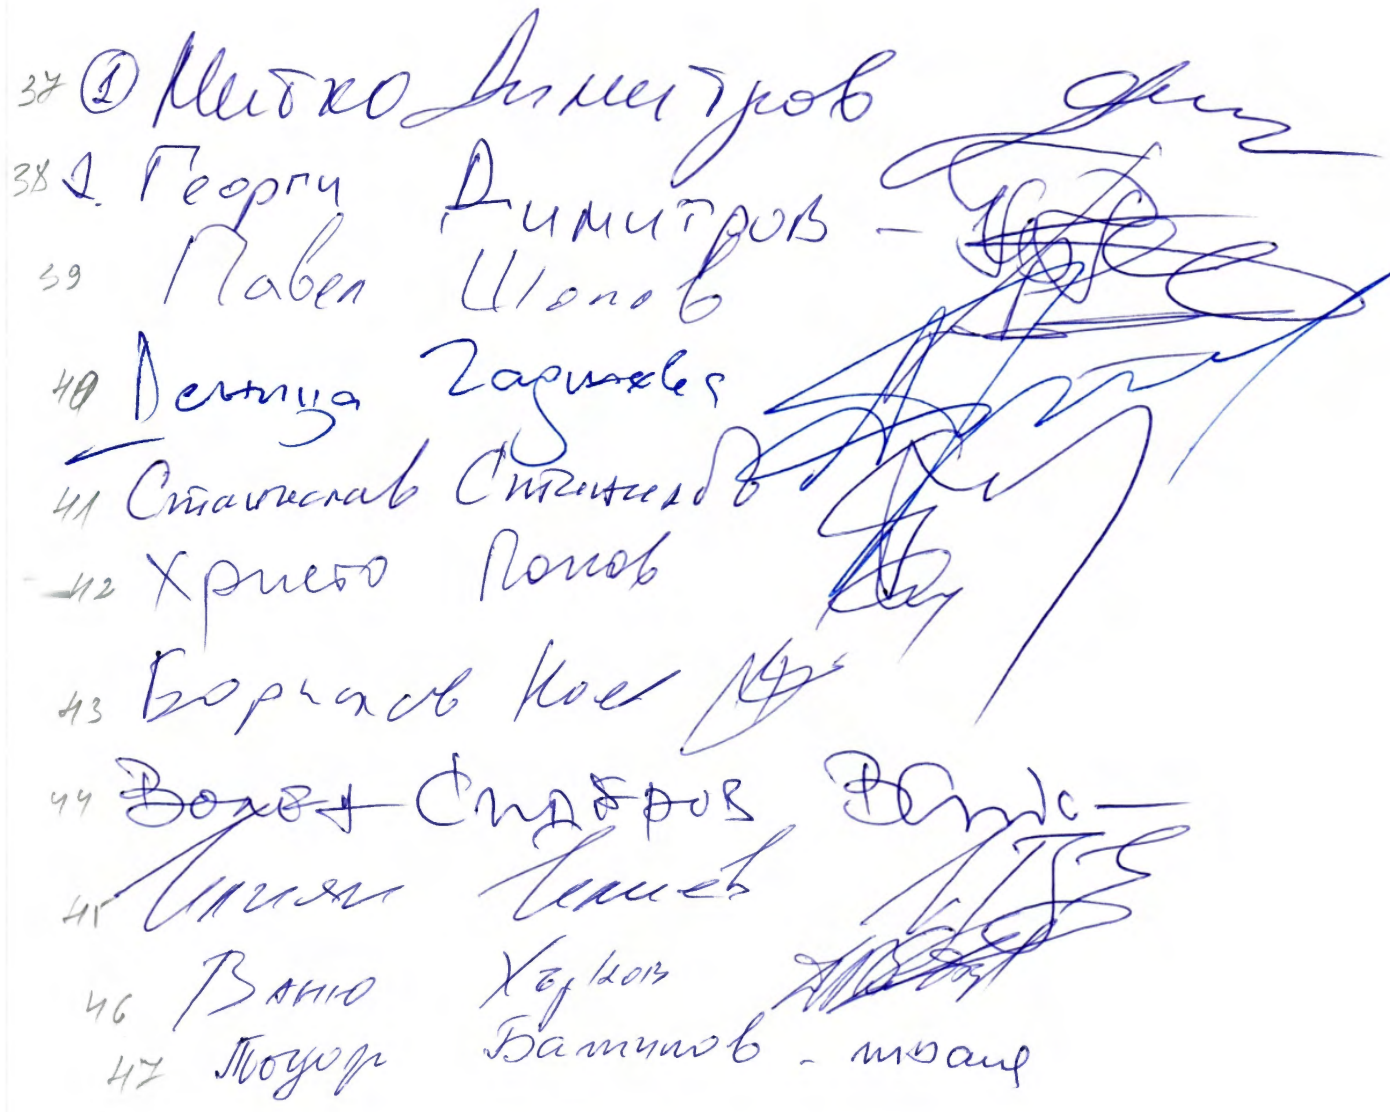 37 ① Митко Димитров
38 2. Георги Димитров -
39 Павел Шопов
40 Деница Гаджева
41 Станислав Станилов
42 Христо Попов
43 Борисов
44 Волен Сидеров
45 Илиян Илиев
46 Ваньо Хърков
47 Тодор Батилов -